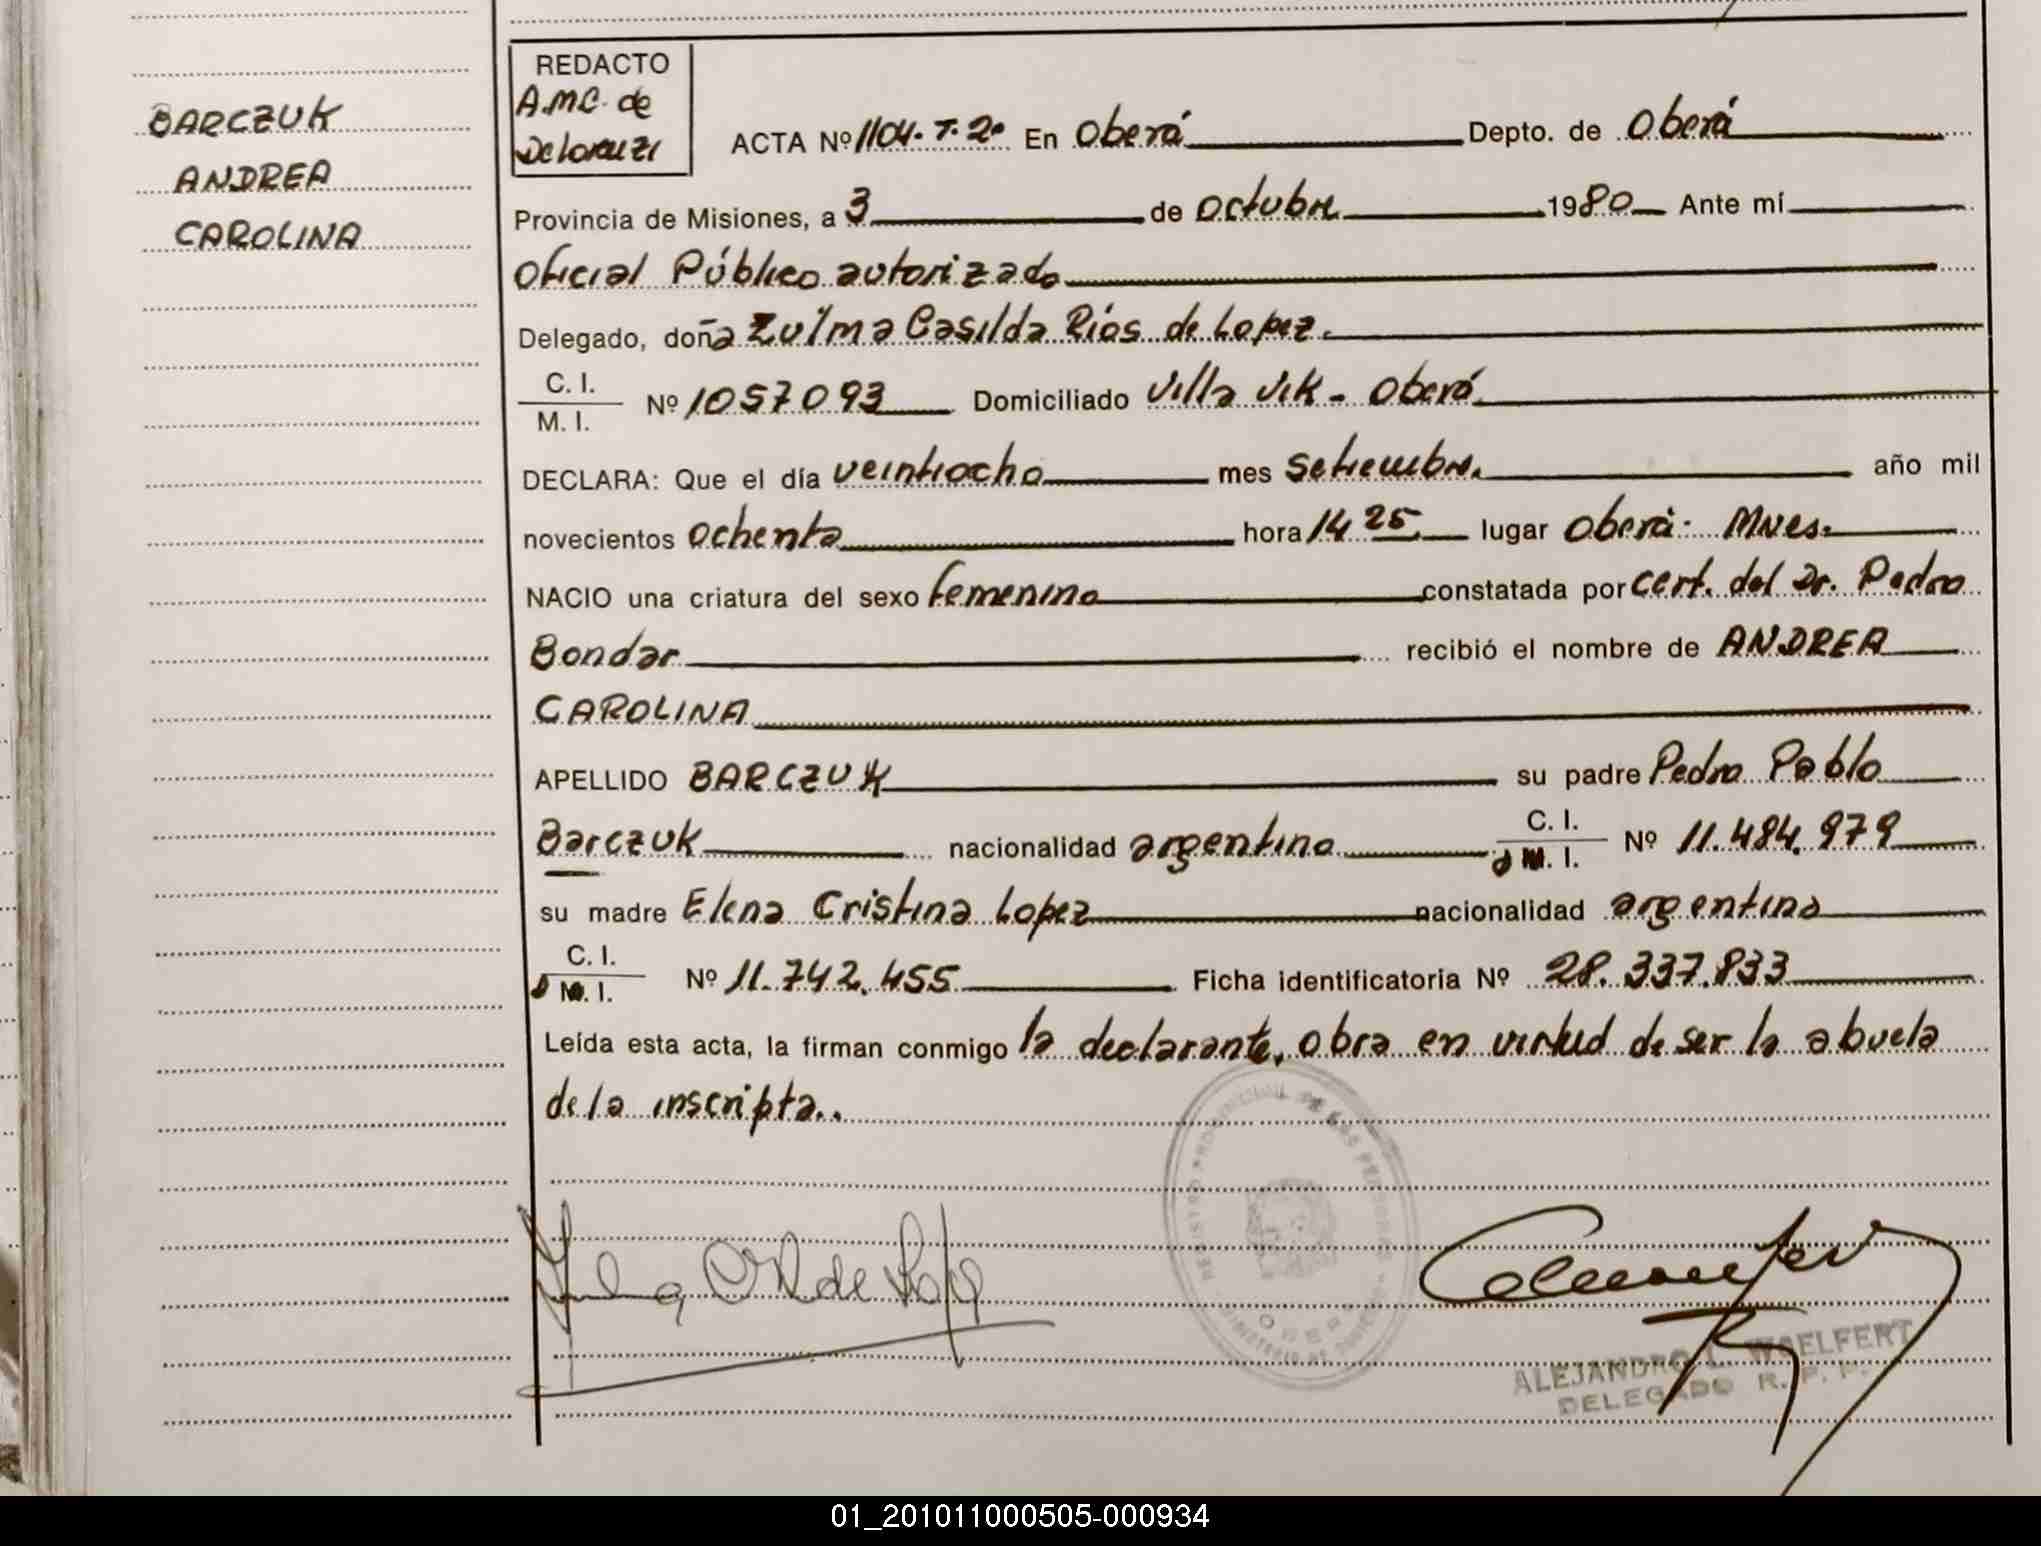 BARCZUK
ANDREA
CAROLINA
REDACTO
A.M.C. de
De Lorenzi
ACTA Nº 1104. T. 2º En Oberá Depto. de Oberá
Provincia de Misiones, a 3 de octubre 1980 Ante mí
Oficial Público autorizado
Delegado, doña Zulma Casilda Ríos de Lopez.
C. I.
M. I.
Nº 1057093 Domiciliado Villa Vik - Oberá
DECLARA: Que el día veintiocho mes setiembre año mil
novecientos ochenta hora 14 25 lugar Oberá: Mnes.
NACIO una criatura del sexo femenino constatada por cert. del Dr. Pedro
Bondar recibió el nombre de ANDREA
CAROLINA
APELLIDO BARCZUK su padre Pedro Pablo
Barczuk nacionalidad argentina C. I. M. I. Nº 11.484.979
su madre Elena Cristina Lopez nacionalidad argentina
C. I.
M. I.
Nº 11.742.455 Ficha identificatoria Nº 28.337.833
Leída esta acta, la firman conmigo la declarante, obra en virtud de ser la abuela
de la inscripta..
ALEJANDRO L. WOELFERT
DELEGADO R. P. P.
01_201011000505-000934